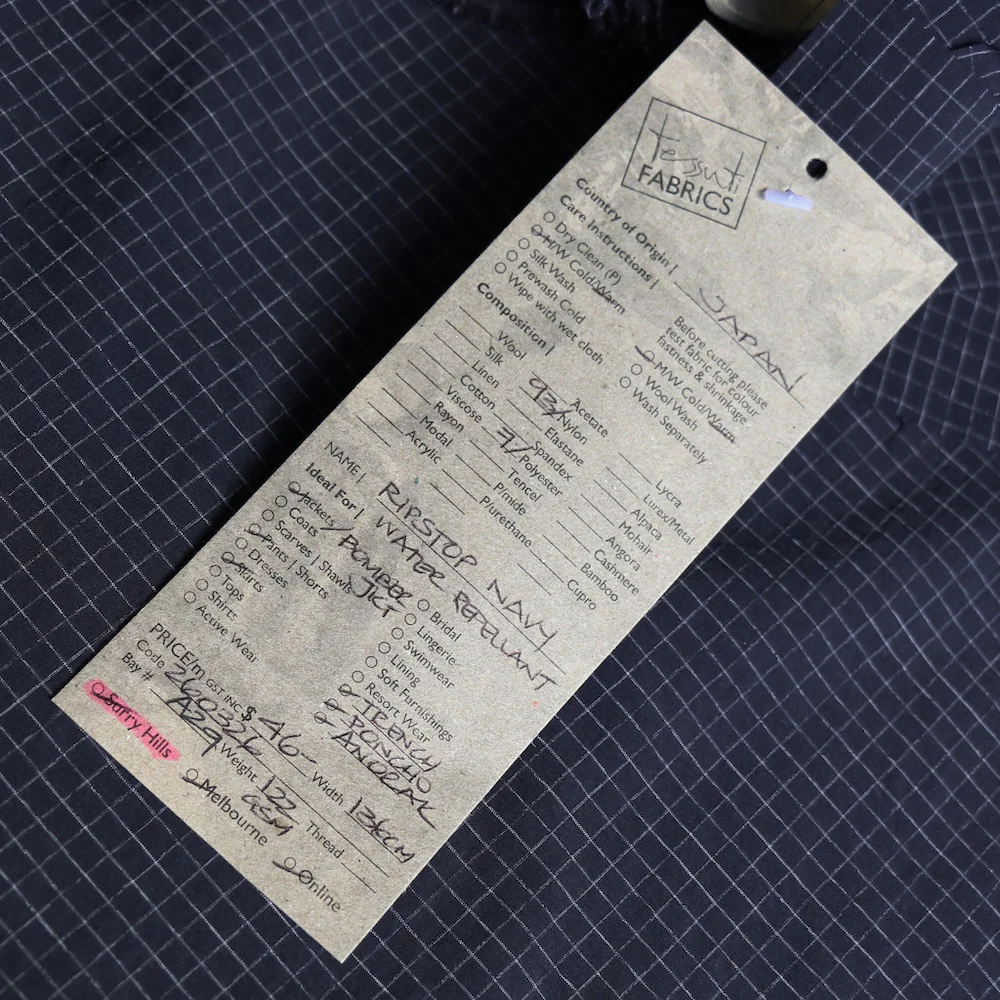 tessuti
FABRICS
Country of Origin | JAPAN
Care Instructions |
Before cutting please
test fabric for colour
fastness & shrinkage
Dry Clean (P)
H/W Cold/Warm
Silk Wash
Prewash Cold
Wipe with wet cloth
M/W Cold/Warm
Wool Wash
Wash Separately
Composition |
Wool
Silk
Linen
Cotton
Viscose
Rayon
Modal
Acrylic
Acetate
93% Nylon
Elastane
Spandex
7% Polyester
Tencel
P/mide
P/urethane
Lycra
Lurex/Metal
Alpaca
Angora
Mohair
Cashmere
Bamboo
Cupro
NAME | RIPSTOP NAVY
WATER REPELLANT
Ideal For |
Jackets / BOMBER
JKT
Coats
Scarves | Shawls
Pants | Shorts
Dresses
Skirts
Tops
Shirts
Active Wear
Bridal
Lingerie
Swimwear
Lining
Soft Furnishings
Resort Wear
TRENCH
PONCHO
ANORAK
PRICE/m GST INC $ 46-
Code 260326
Bay # A29
Width 136CM
Weight 122
GSM
Thread
Surry Hills
Melbourne
Online